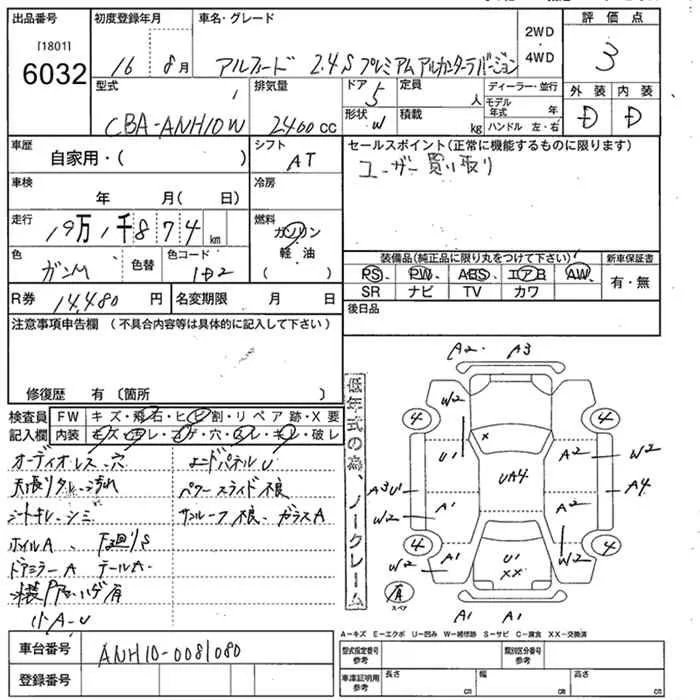 出品番号 初度登録年月 車名・グレード 2WD・4WD 評価点
[1801]
6032 16 8月 アルファード 2.4S プレミアムアルカンターラバージョン 3
型式 排気量 ドア 5 定員 人 ディーラー・並行 外装 内装
CBA-ANH10W 2400cc 形状 W 積載 kg モデル年式 年 D D
ハンドル 左・右
車歴 自家用・( ) シフト AT セールスポイント(正常に機能するものに限ります)
ユーザー買い取り
車検 年 月( 日) 冷房
走行 19万1千874km 燃料 ガソリン
軽油
( )
色 ガンM 色替 色コード 1D2 装備品(純正品に限り丸をつけて下さい) 新車保証書
PS PW ABS エアB AW 有・無
SR ナビ TV カワ
R券 14,480円 名変期限 月 日 後日品
注意事項申告欄 (不具合内容等は具体的に記入して下さい)
修復歴 有 (箇所 )
検査員 FW キズ・飛石・ヒビ割・リペア跡・X要
記入欄 内装 キズ・ヨゴレ・コゲ・穴・スレ・キレ・破レ
オーディオレス、穴 ウッドパネルU
天張りタレ、汚れ パワースライド不良
シートキレ、シミ サンルーフ不良、ガラスA
ホイルA、下廻りS
ドアミラーA テールA
小A・U
低年式の為、ノークレーム
A2 A3
W2
4 4
U1 A2 W2
UA4
A3U1 A4
W2 A1 A2
4 4
A1 W2 W2
U1
XX
有
スペア
A1 A1
A−キズ E−エクボ U−凹み W−補修跡 S−サビ C−腐食 XX−交換済
車台番号 ANH10-0081080
登録番号
型式指定番号 参考 類別区分番号 参考
車庫証明用 参考 長さ cm 幅 cm 高さ cm